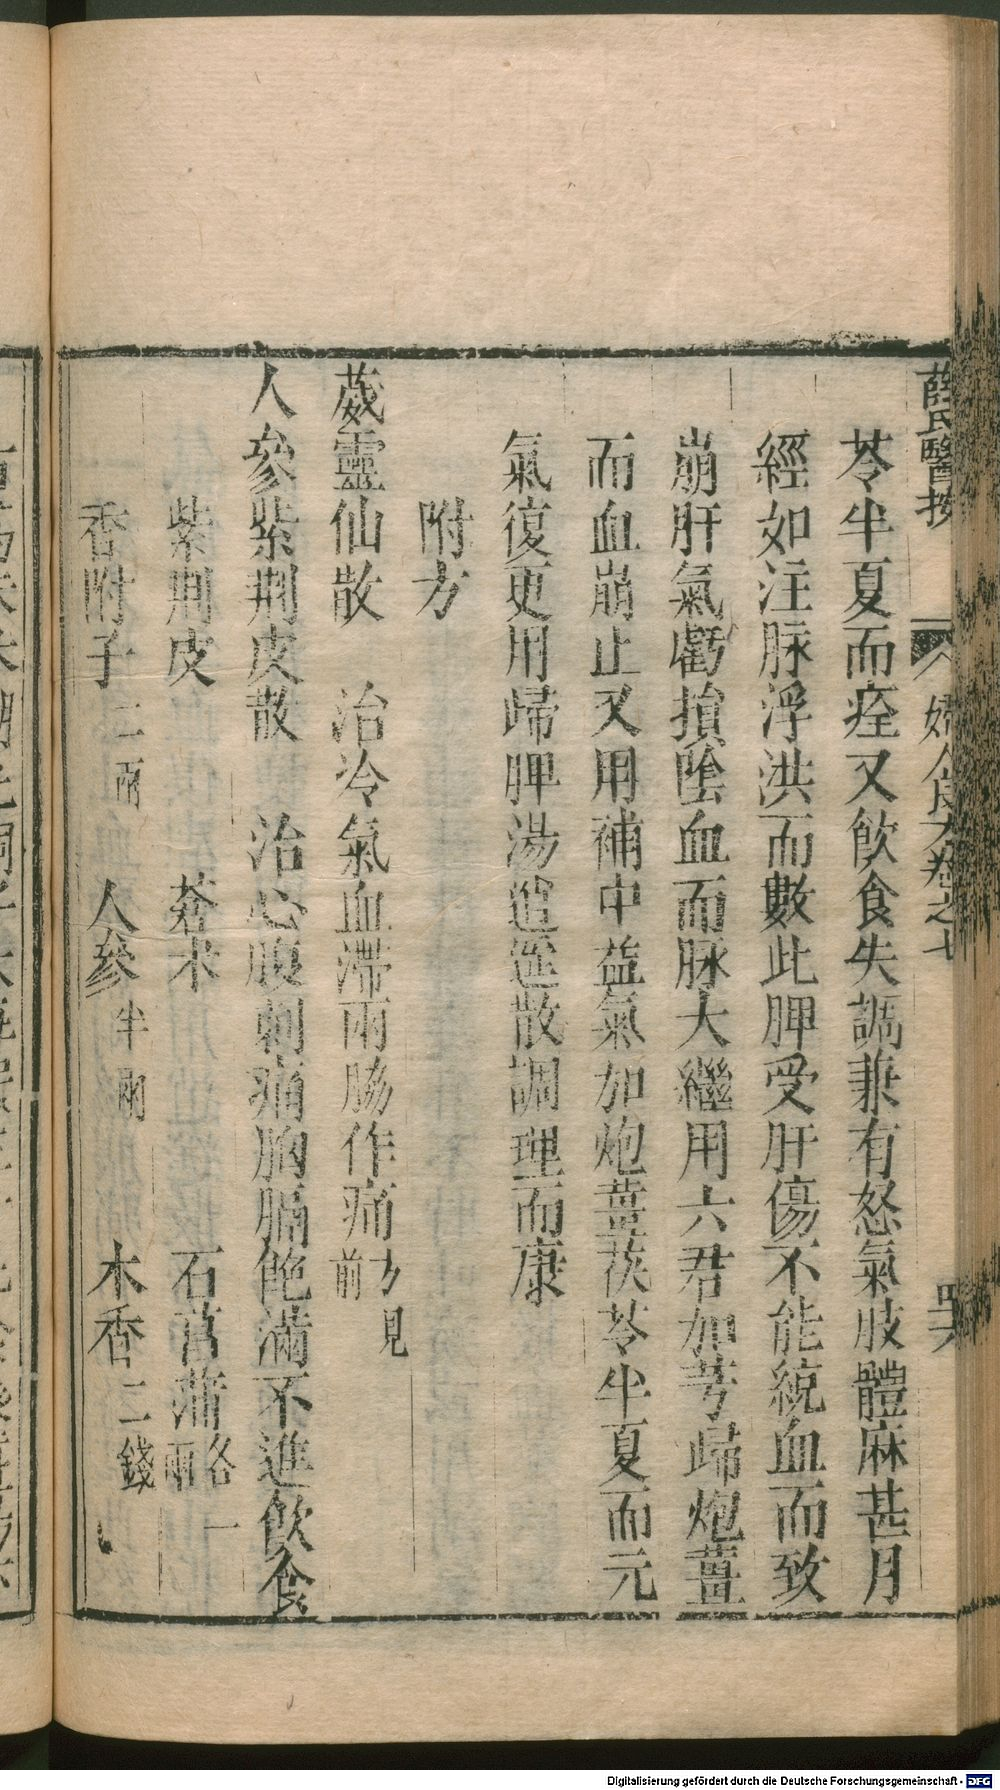 薛氏醫按 婦人良方卷之七 四六
苓半夏而痊又飲食失調兼有怒氣肢體麻甚月
經如注脉浮洪而數此脾受肝傷不能統血而致
崩肝氣虧損陰血而脉大繼用六君加芎歸炮薑
而血崩止又用補中益氣加炮薑茯苓半夏而元
氣復更用歸脾湯逍遥散調理而康
附方
葳靈仙散 治冷氣血滯兩脇作痛方見前
人參紫荆皮散 治心腹刺痛胸膈飽滿不進飲食
紫荆皮 蒼术 石菖蒲各一兩
香附子二兩 人參半兩 木香二錢
Digitalisierung gefördert durch die Deutsche Forschungsgemeinschaft - DFG